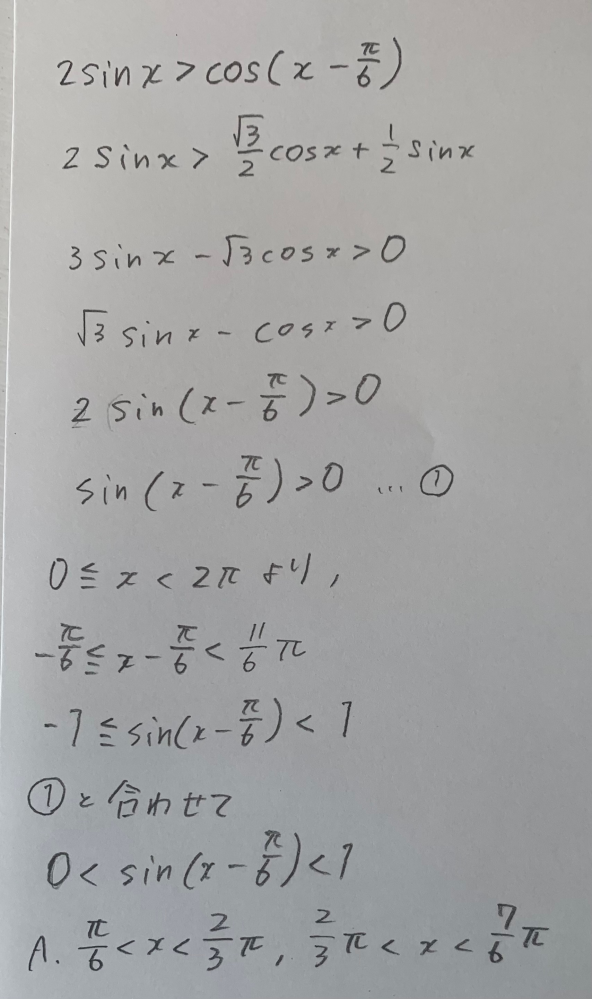 2sinx>cos(x-π/6)
2sinx>√3/2cosx+1/2sinx
3sinx-√3cosx>0
√3sinx-cosx>0
2sin(x-π/6)>0
sin(x-π/6)>0 …①
0≦x<2πより,
-π/6≦x-π/6<11/6π
-1≦sin(x-π/6)<1
①と合わせて
0<sin(x-π/6)<1
A. π/6<x<2/3π, 2/3π<x<7/6π